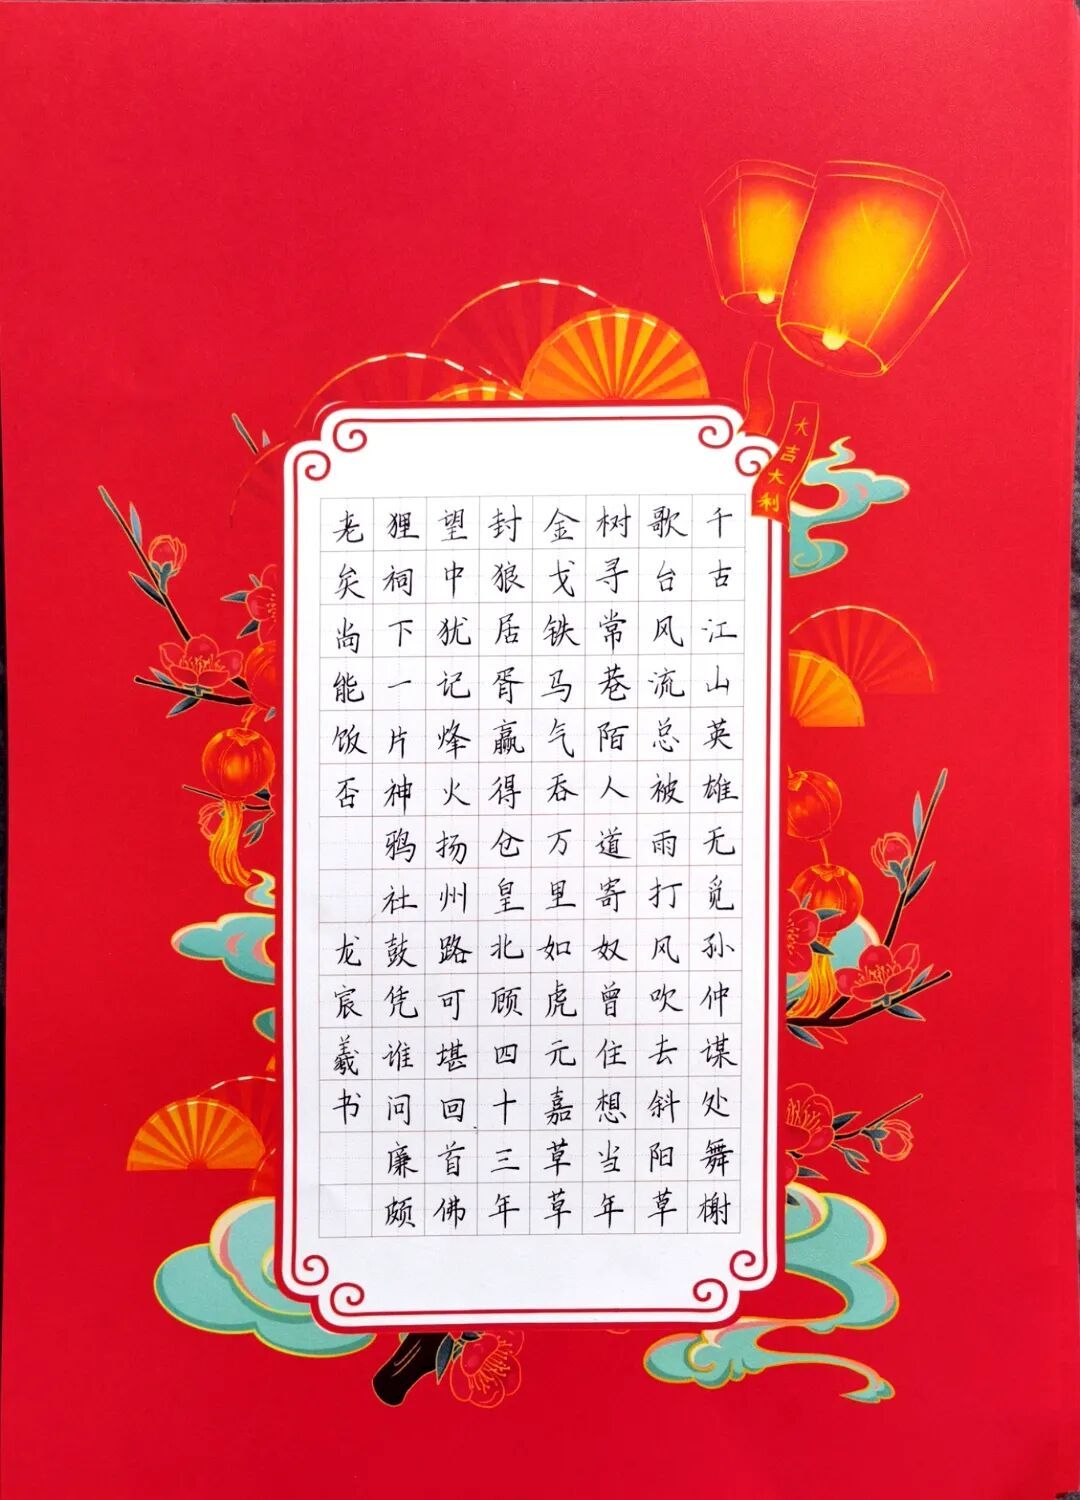 大吉大利
千古江山英雄无觅孙仲谋处舞榭
歌台风流总被雨打风吹去斜阳草
树寻常巷陌人道寄奴曾住想当年
金戈铁马气吞万里如虎元嘉草草
封狼居胥赢得仓皇北顾四十三年
望中犹记烽火扬州路可堪回首佛
狸祠下一片神鸦社鼓凭谁问廉颇
老矣尚能饭否 龙宸羲书